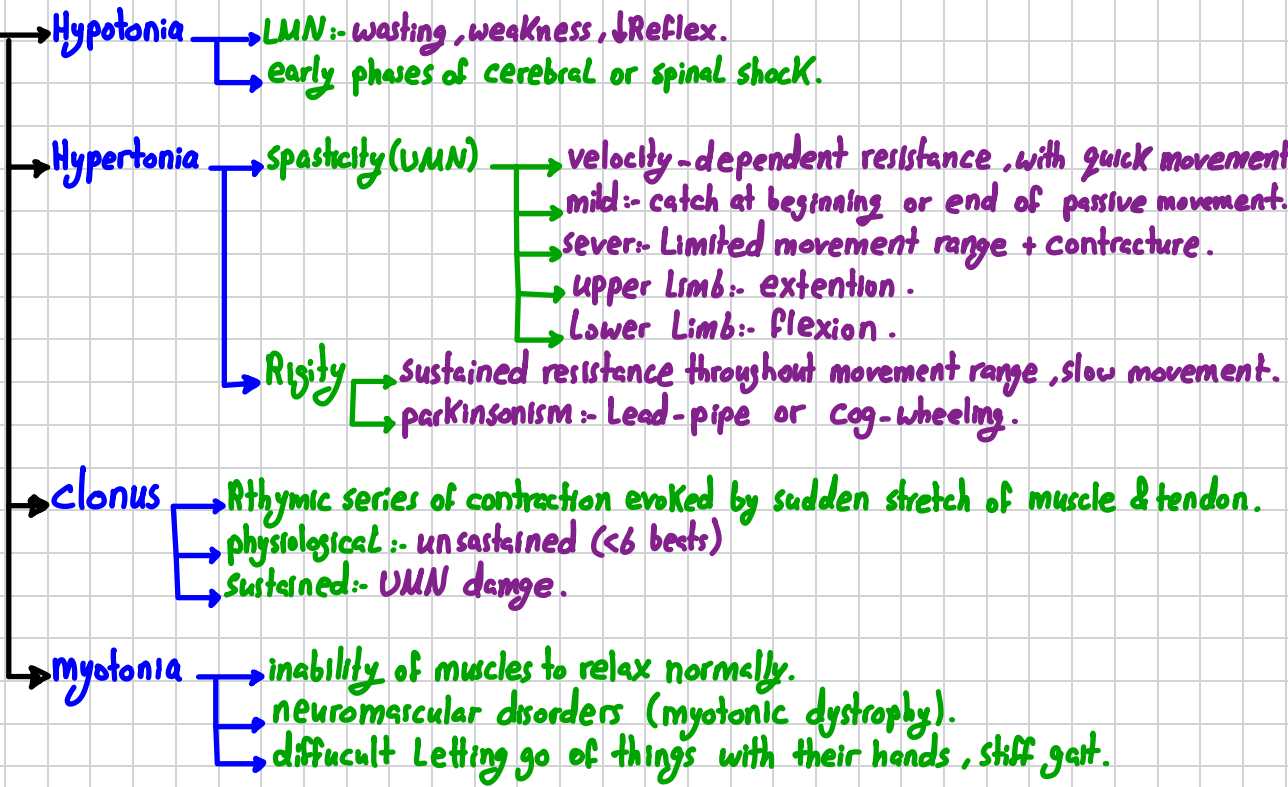 Hypotonia
LMN:- wasting, weakness, ↓Reflex.
early phases of cerebral or spinal shock.
Hypertonia
spasticity (UMN)
velocity-dependent resistance, with quick movement
mild:- catch at beginning or end of passive movement.
sever:- Limited movement range + contracture.
upper Limb:- extention.
Lower Limb:- flexion.
Rigity
sustained resistance throughout movement range, slow movement.
parkinsonism:- Lead-pipe or cog-wheeling.
Clonus
Rthymic series of contraction evoked by sudden stretch of muscle & tendon.
physiological:- unsastained (<6 beats)
sustained:- UMN damge.
myotonia
inability of muscles to relax normally.
neuromascular disorders (myotonic dystrophy).
diffucult Letting go of things with their hands, stiff gait.